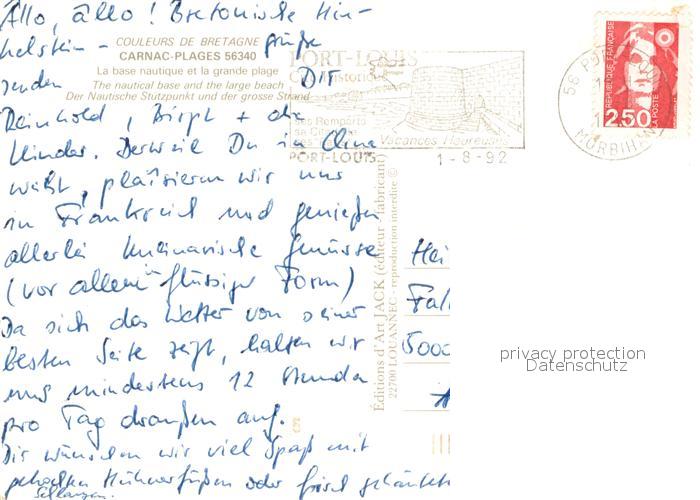 Allo, âllo! Bretonische Hin-
kelstein - grüße
senden DIR
Reinhold, Birgit + die
Kinder. Derweil Du in China
weilst, pläsieren wir uns
in Frankreich und genießen
allerlei kulinarische Genüsse
(vor allem in flüssiger Form)
Da sich das Wetter von seiner
besten Seite zeigt, halten wir
uns mindestens 12 Stunden
pro Tag draußen auf.
Dir wünschen wir viel Spaß mit
gekochten Hühnerfüßen oder frisch geschlachteten
Schlangen.
COULEURS DE BRETAGNE
CARNAC-PLAGES 56340
La base nautique et la grande plage
The nautical base and the large beach
Der Nautische Stutzpunkt und der grosse Strand
PORT-LOUIS
Ses Remparts
sa Citadelle
Vacances Heureuses
PORT-LOUIS
1-8-92
56 PORT
MORBIHAN
REPUBLIQUE FRANÇAISE
LA POSTE
2,50
Éditions d'Art JACK (éditeur - fabricant)
22700 LOUANNEC - reproduction interdite ©
Hei
Fal
5000
privacy protection
Datenschutz